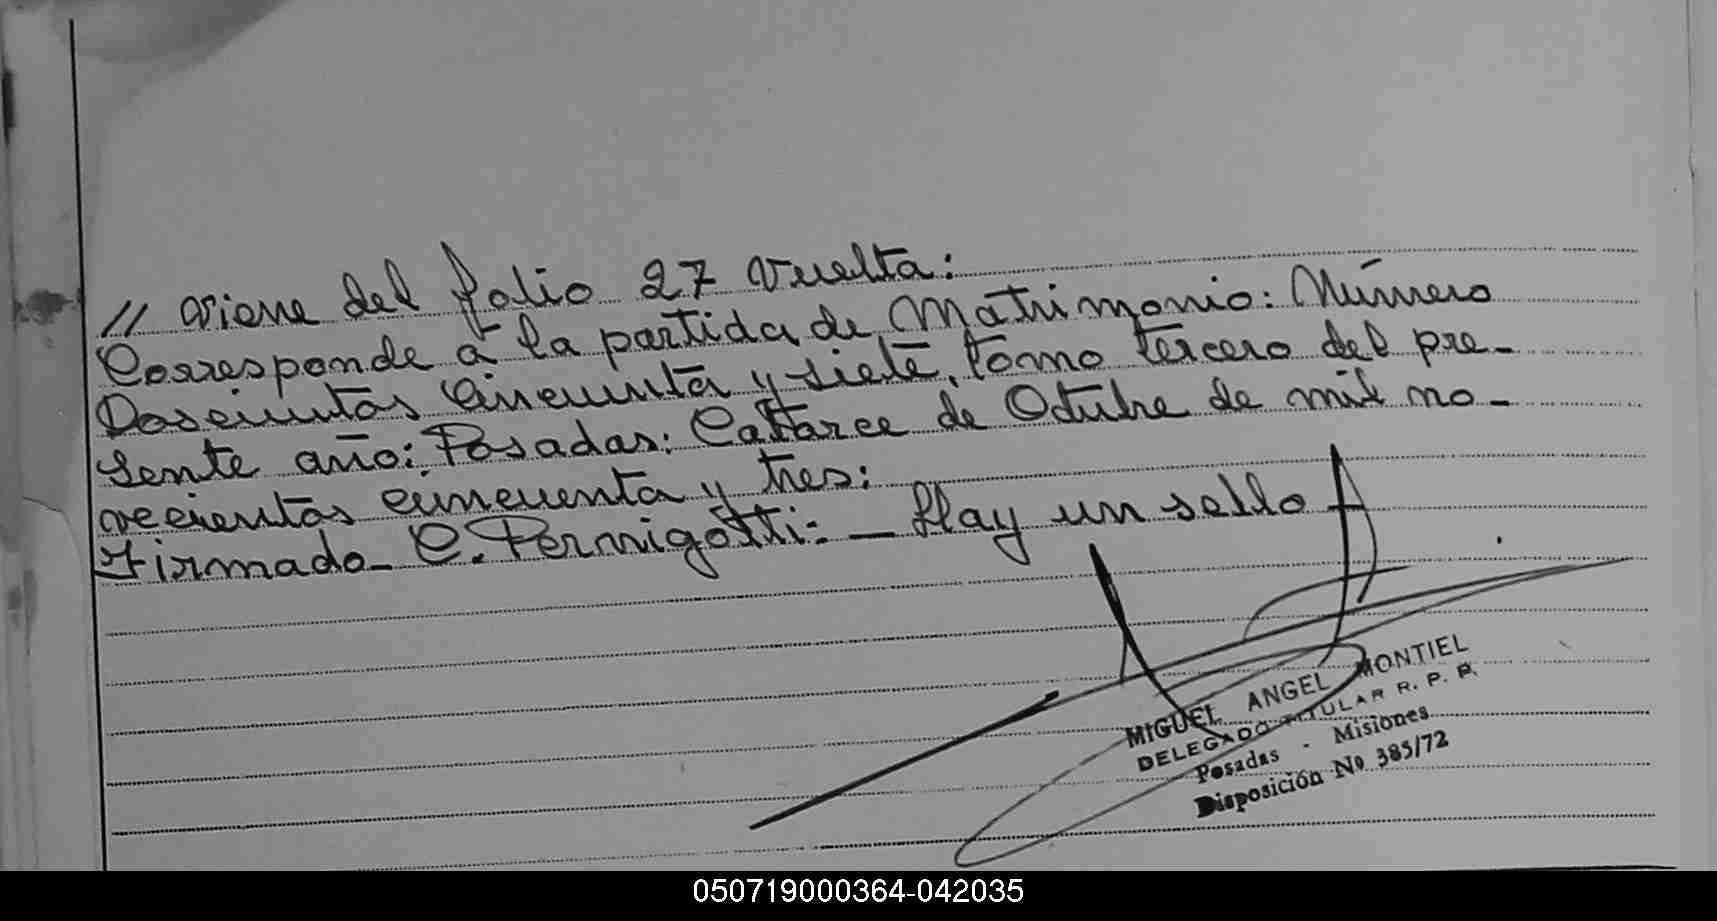 // Viene del folio 27 Vuelta:
Corresponde a la partida de Matrimonio: Número
Doscientos Cincuenta y siete, tomo tercero del pre-
sente año: Posadas: Catorce de Octubre de mil no-
vecientos cincuenta y tres:
Firmado- C. Pernigotti:- Hay un sello
MIGUEL ANGEL MONTIEL
DELEGADO TITULAR R. P. P.
Posadas - Misiones
Disposición Nº 385/72
050719000364-042035